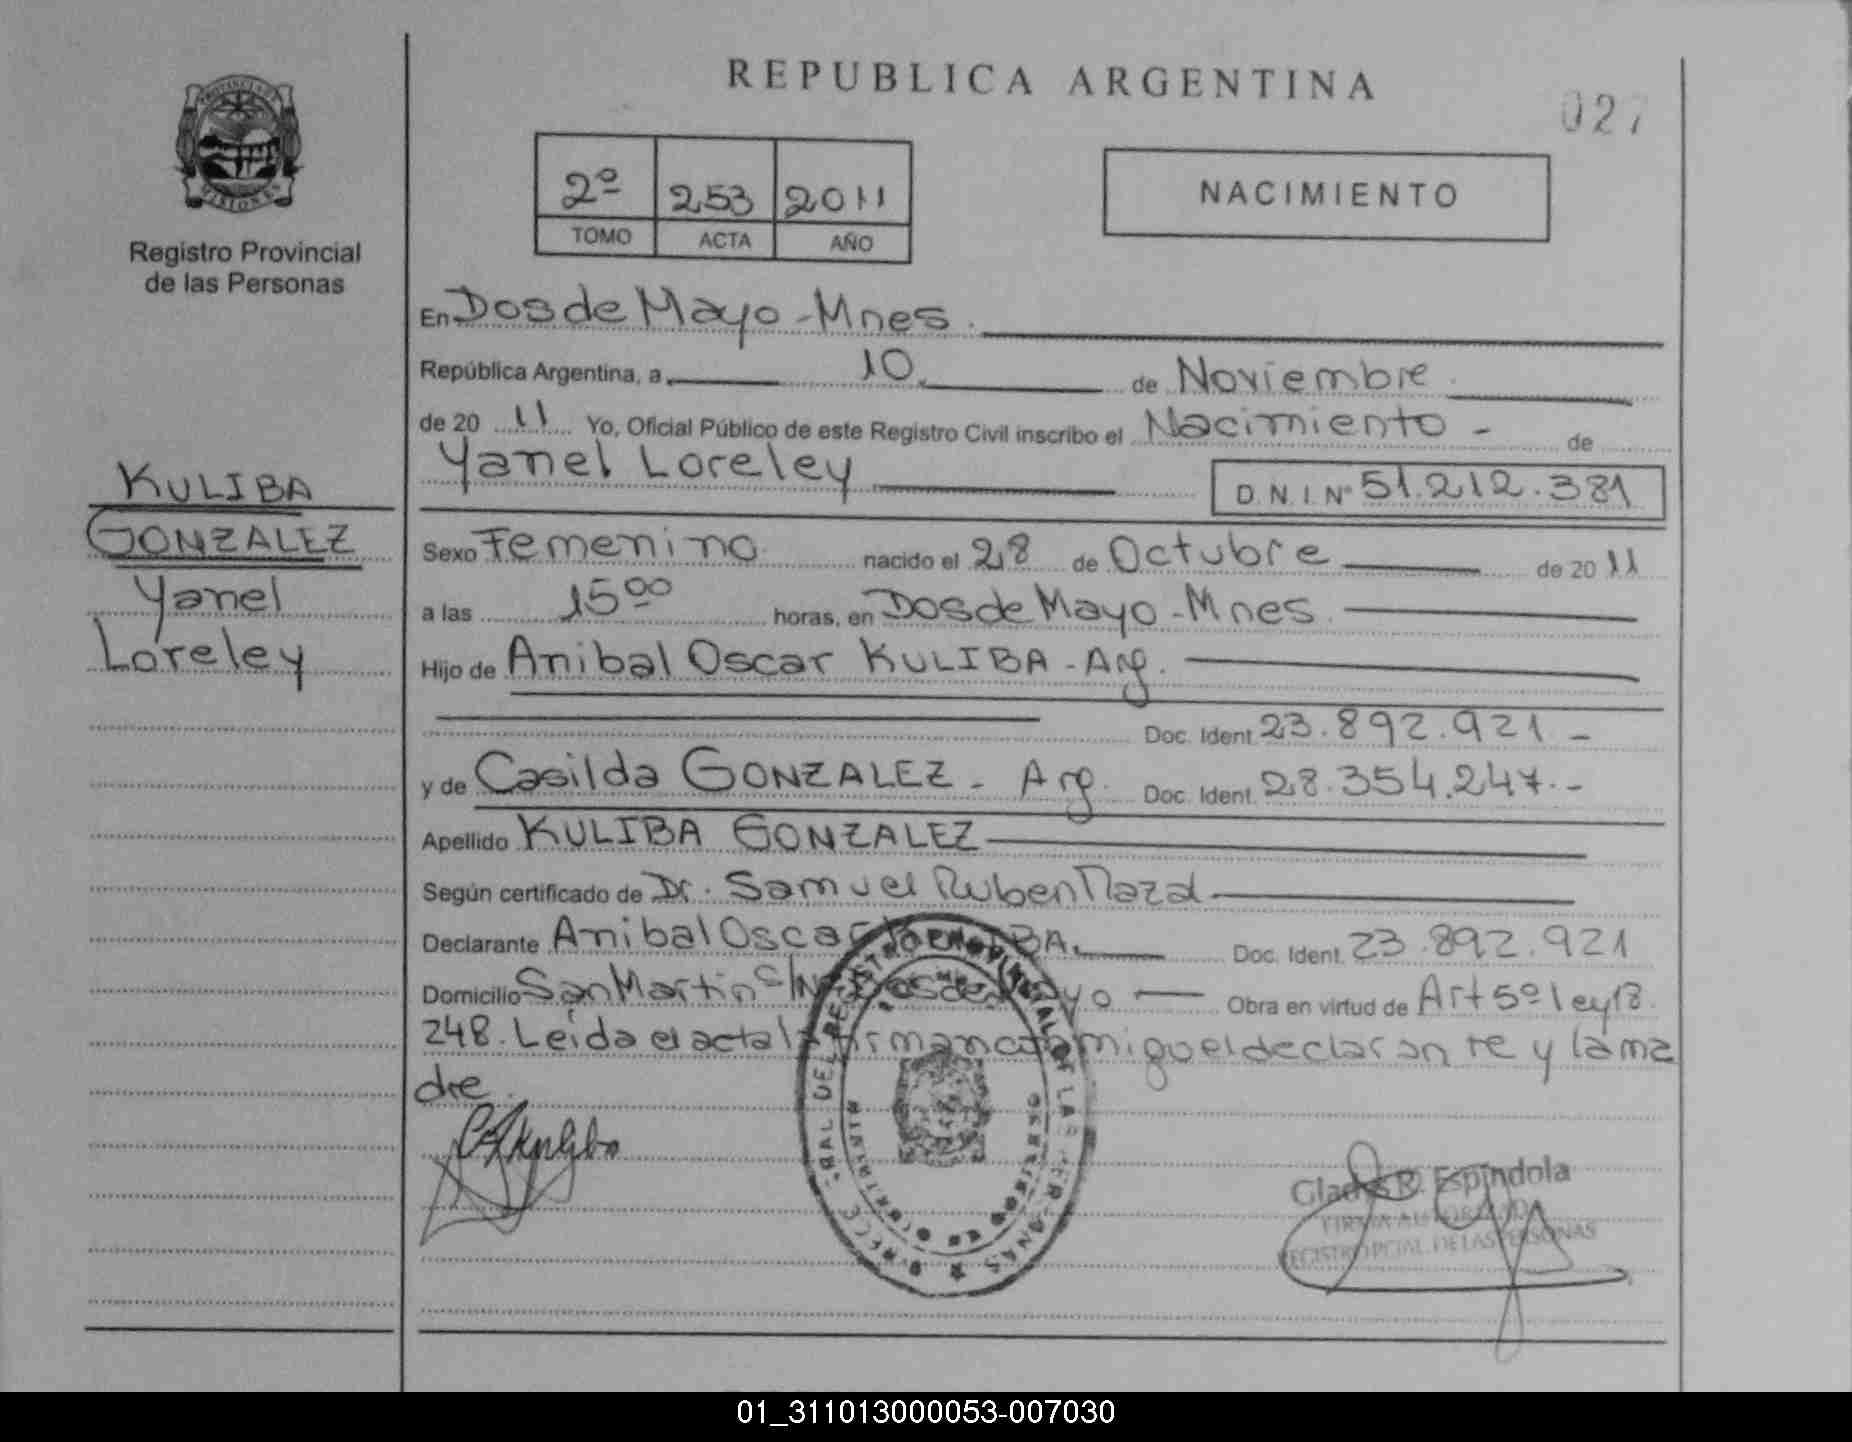 REPUBLICA ARGENTINA
027
PROVINCIA DE
MISIONES
Registro Provincial
de las Personas
2º 253 2011
TOMO ACTA AÑO
NACIMIENTO
En Dos de Mayo - Mnes.
República Argentina, a 10 de Noviembre
de 20 11 Yo, Oficial Público de este Registro Civil inscribo el Nacimiento - de
Yanel Loreley D.N.I. Nº 51.212.381
KULIBA
GONZALEZ
Yanel
Loreley
Sexo Femenino nacido el 28 de Octubre de 20 11
a las 15 00 horas, en Dos de Mayo - Mnes.
Hijo de Anibal Oscar KULIBA - Arg.
Doc. Ident. 23.892.921 -
y de Casilda GONZALEZ - Arg. Doc. Ident. 28.354.247.-
Apellido KULIBA GONZALEZ
Según certificado de Dr. Samuel Ruben
Declarante Anibal Oscar Doc. Ident. 23.892.921
Domicilio San Martin S/Nº Dos de Mayo Obra en virtud de Art 5º ley 18.
248. Leída el acta la firman conmigo el declarante y la ma
dre.
Gladys R. Espíndola
FIRMA AUTORIZADA
REGISTRO PCIAL. DE LAS PERSONAS
01_311013000053-007030